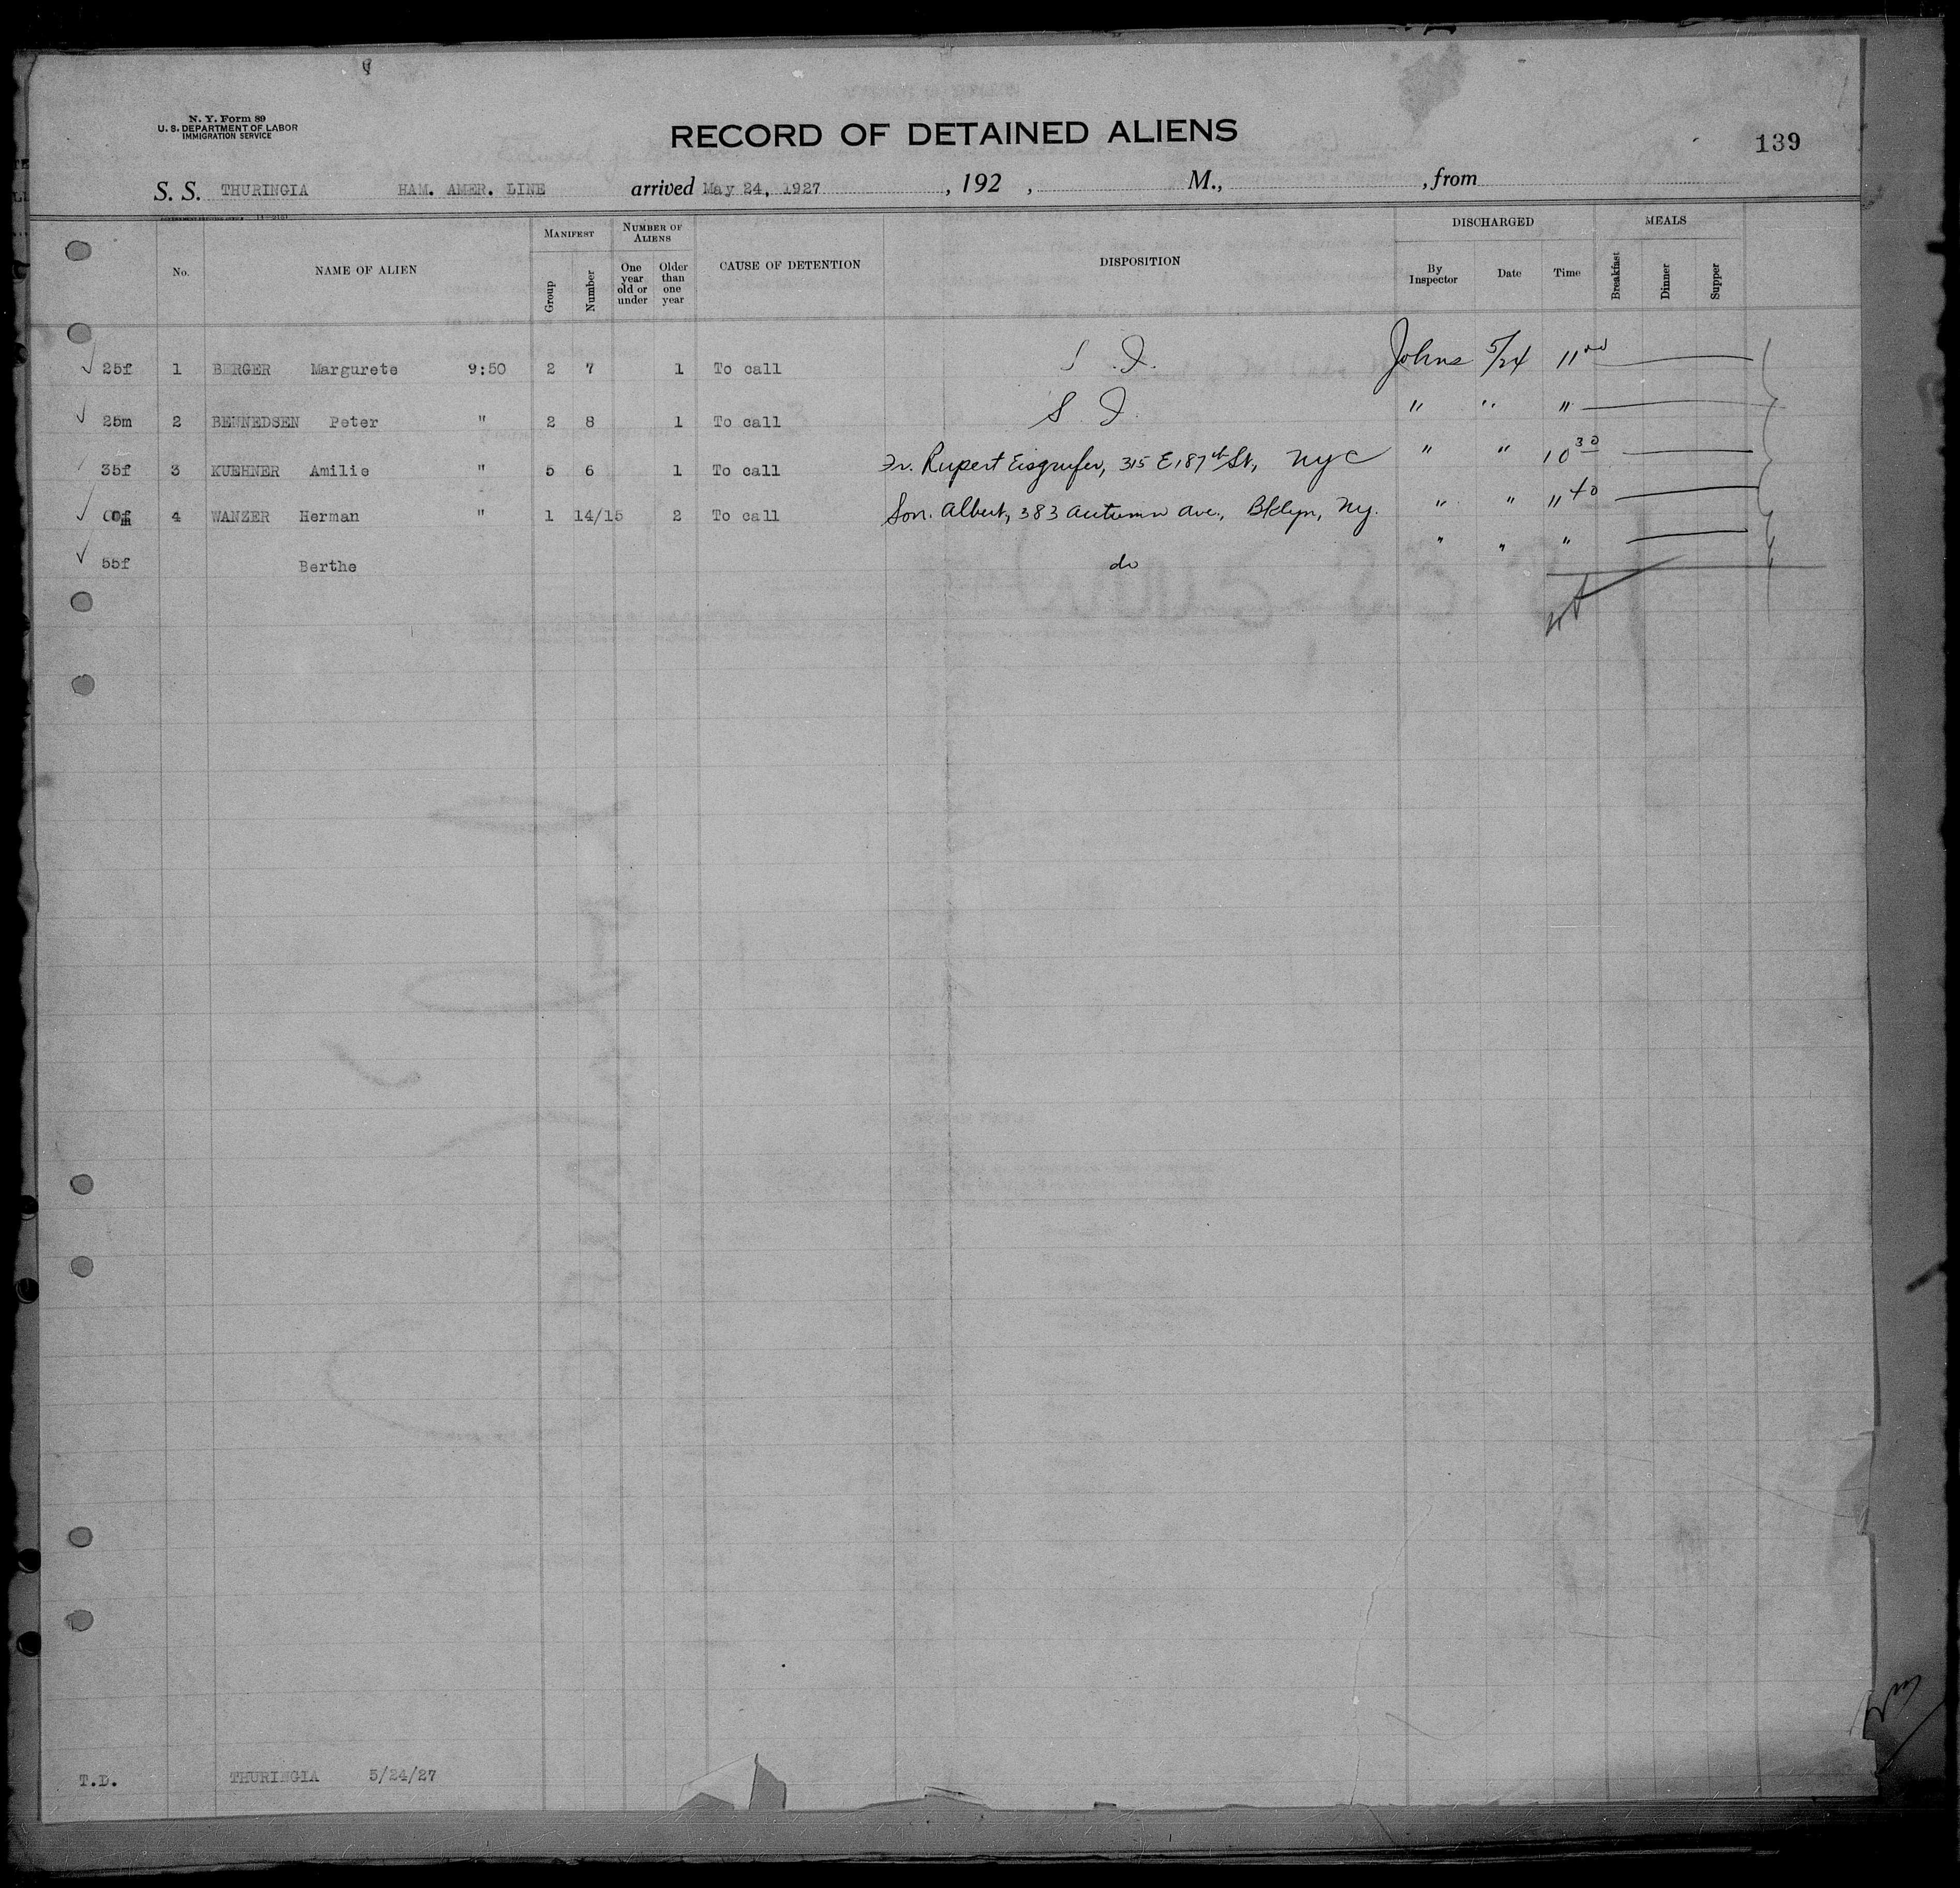 N. Y. Form 89
U. S. DEPARTMENT OF LABOR
IMMIGRATION SERVICE
RECORD OF DETAINED ALIENS
139
S. S. THURINGIA HAM. AMER. LINE arrived May 24, 1927, 192 , M., , from
No. NAME OF ALIEN MANIFEST Group Number NUMBER OF ALIENS One year old or under Older than one year CAUSE OF DETENTION DISPOSITION DISCHARGED By Inspector Date Time MEALS Breakfast Dinner Supper
25f 1 BERGER Margurete 9:50 2 7 1 To call S. I. Johns 5/24 11 00
25m 2 BENNEDSEN Peter " 2 8 1 To call S I. " " "
35f 3 KUEHNER Amilie " 5 6 1 To call Fr. Rupert Eisgrufer, 315 E 187th St, NYC " " 10 30
4 WANZER Herman " 1 14/15 2 To call Son. Albert, 383 Autumn Ave., Bklyn, Ny. " " 11 40
55f Berthe do " " "
T.D. THURINGIA 5/24/27